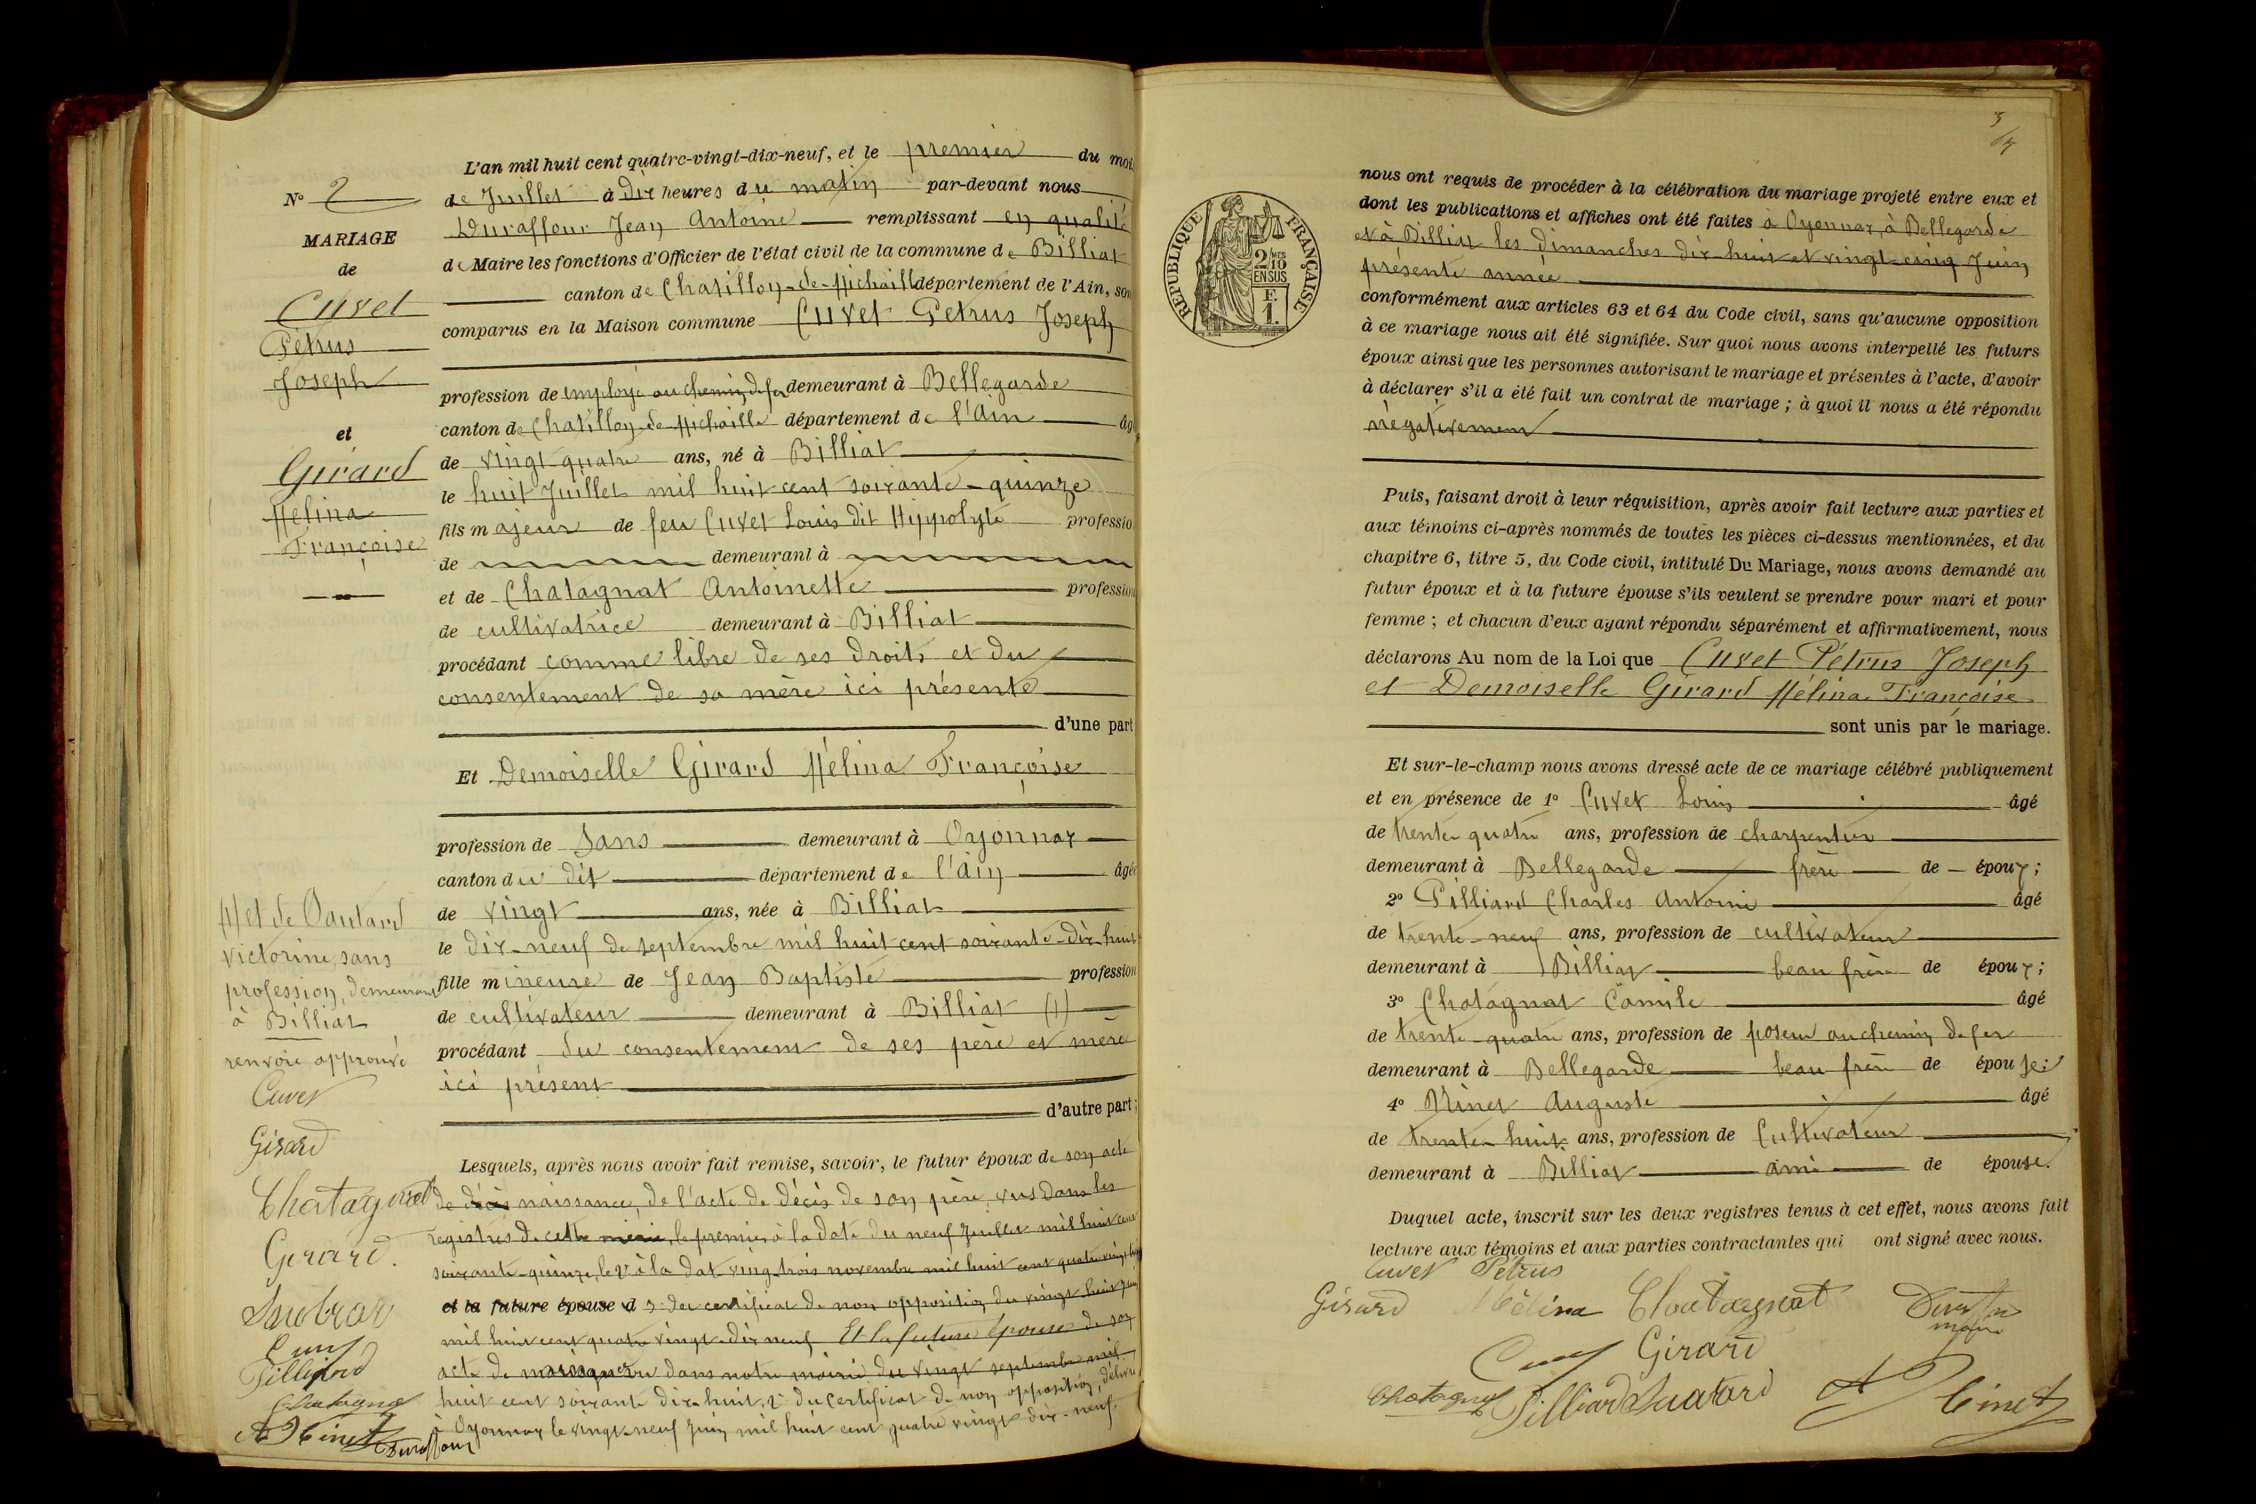 L'an mil huit cent quatre-vingt-dix-neuf, et le premier du moi
de Juillet à Dix heures du matin par-devant nous
Duraffour Jean Antoine remplissant en qualité
de Maire les fonctions d'Officier de l'état civil de la commune de Billiat
canton de Chatillon-de-Michaille département de l'Ain, son
comparus en la Maison commune Cuvet Petrus Joseph
profession de employé au chemin de fer demeurant à Bellegarde
canton de Chatillon-de-Michaille département de l'Ain âg
de vingt-quatre ans, né à Billiat
le huit Juillet mil huit cent soixante-quinze
fils majeur de feu Cuvet Louis dit Hippolyte professio
de demeurant à
et de Chatagnat Antoinette profession
de cultivatrice demeurant à Billiat
procédant comme libre de ses droits et du
consentement de sa mère ici présente
d'une part
Et Demoiselle Girard Hélina Françoise
profession de Sans demeurant à Oyonnax
canton du dit département de l'Ain âgée
de vingt ans, née à Billiat
le dix-neuf de septembre mil huit cent soixante-dix-huit
fille mineure de Jean Baptiste profession
de cultivateur demeurant à Billiat (1)
procédant du consentement de ses père et mère
ici présent
d'autre part;
Lesquels, après nous avoir fait remise, savoir, le futur époux de son acte
de décès naissance, de l'acte de décès de son père, vus dans les
registres de cette mairie, le premier à la date du neuf Juillet mil huit cent
soixante-quinze, le 2e à la dat vingt trois novembre mil huit cent quatre vingt
et la future épouse d 3e du certificat de non opposition du vingt huit Juin
mil huit cent quatre vingt-dix neuf Et la future épouse de son
acte de naissance vu dans notre mairie du vingt septembre mil
huit cent soixante dix-huit, 2e du certificat de non opposition, délivré
à Oyonnax le vingt-neuf Juin mil huit cent quatre vingt dix-neuf.
No 2
MARIAGE
de
Cuvet
Pétrus
Joseph
et
Girard
Hélina
Françoise
(1) et de
victorine, sans
profession, demeurant
à Billiat
renvoie approuvé
Cuvet
Girard
Chatagnat
Girard
Pilliard
Chatagnat
A Binet
Duraffour
3
RÉPUBLIQUE FRANÇAISE
2/10 MES
EN SUS
F.
1.
nous ont requis de procéder à la célébration du mariage projeté entre eux et
dont les publications et affiches ont été faites à Oyonnax, à Bellegarde
et à Billiat les dimanches dix-huit et vingt-cinq Juin
présente année
conformément aux articles 63 et 64 du Code civil, sans qu'aucune opposition
à ce mariage nous ait été signifiée. Sur quoi nous avons interpellé les futurs
époux ainsi que les personnes autorisant le mariage et présentes à l'acte, d'avoir
à déclarer s'il a été fait un contrat de mariage; à quoi il nous a été répondu
négativement
Puis, faisant droit à leur réquisition, après avoir fait lecture aux parties et
aux témoins ci-après nommés de toutes les pièces ci-dessus mentionnées, et du
chapitre 6, titre 5, du Code civil, intitulé Du Mariage, nous avons demandé au
futur époux et à la future épouse s'ils veulent se prendre pour mari et pour
femme; et chacun d'eux ayant répondu séparément et affirmativement, nous
déclarons Au nom de la Loi que Cuvet Pétrus Joseph
et Demoiselle Girard Hélina Françoise
sont unis par le mariage.
Et sur-le-champ nous avons dressé acte de ce mariage célébré publiquement
et en présence de 1o Cuvet Louis âgé
de trente quatre ans, profession de charpentier
demeurant à Bellegarde frère de époux;
2o Pilliard Charles Antoine âgé
de trente-neuf ans, profession de cultivateur
demeurant à Billiat beau frère de époux;
3o Chatagnat Camile âgé
de trente-quatre ans, profession de poseur au chemin de fer
demeurant à Bellegarde beau frère de épouse;
4o Binet Auguste âgé
de trente-huit ans, profession de Cultivateur
demeurant à Billiat ami de épouse.
Duquel acte, inscrit sur les deux registres tenus à cet effet, nous avons fait
lecture aux témoins et aux parties contractantes qui ont signé avec nous.
Cuvet Pétrus
Girard Hélina Chatagnat
maire
Girard
Chatagnat Pilliard A Binet